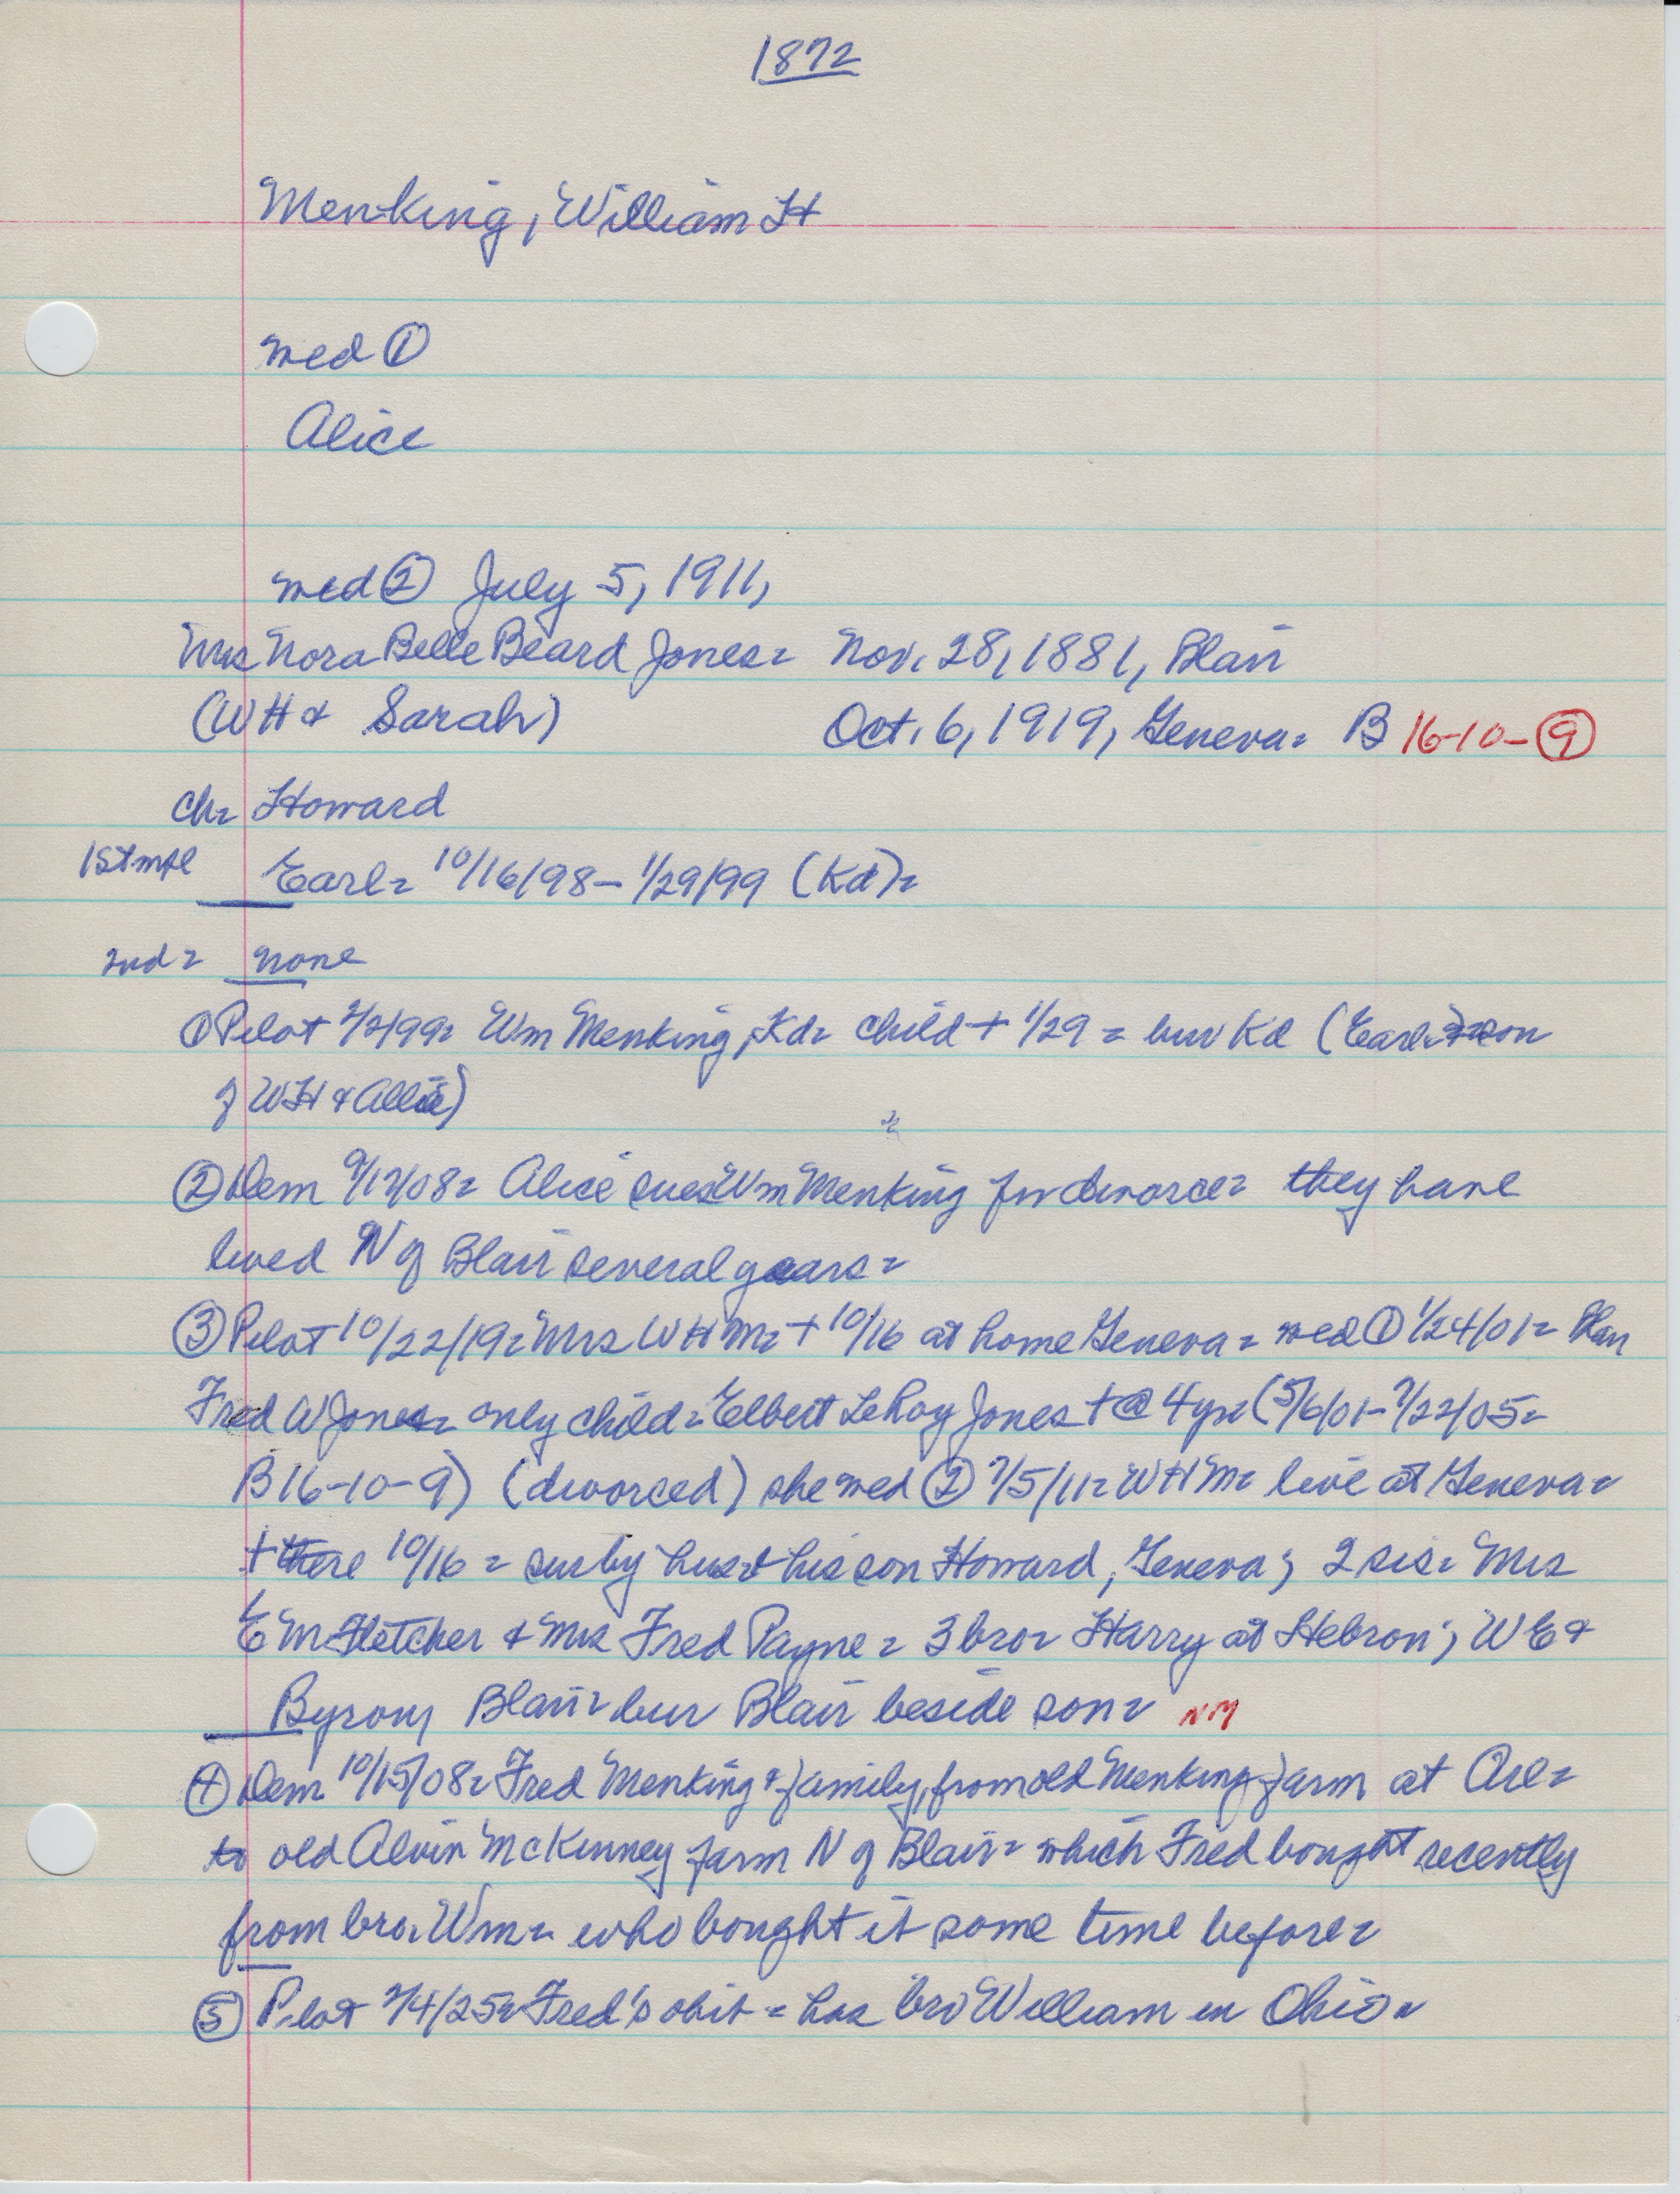 1872
Menking, William H
med ①
Alice
med ② July 5, 1911,
Mrs Nora Belle Beard Jones= Nov. 28, 1881, Blair
(WH & Sarah) Oct. 6, 1919, Geneva= B 16-10-⑨
ch= Howard
1st mge Earl= 10/16/98- 1/29/99 (Kd)=
2nd= none
① Pilot 2/2/99= Wm Menking, Kd= child + 1/29 = bur Kd (Earl= son
of WH & Allie)
② Dem 9/17/08= Alice sues Wm Menking for divorce= they have
lived N of Blair several years=
③ Pilot 10/22/19= Mrs WHM= + 10/16 at home Geneva= med ① 1/24/01= Blair
Fred W Jones= only child= Elbert LeRoy Jones + @ 4 yrs (5/6/01-7/22/05=
B 16-10-9) (divorced) she med ② 7/5/11= WHM= live at Geneva=
+ there 10/16 = sur by hus & his son Howard, Geneva; 2 sis= Mrs
E M Fletcher & Mrs Fred Payne= 3 bro= Harry at Hebron; WE &
Byron, Blair= bur Blair beside son= NM
④ Dem 10/15/08= Fred Menking & family, from old Menking farm at Arl=
to old Alvin McKinney farm N of Blair= which Fred bought recently
from bro. Wm= who bought it some time before=
⑤ Pilot 2/4/25= Fred's obit = has bro William in Ohio=